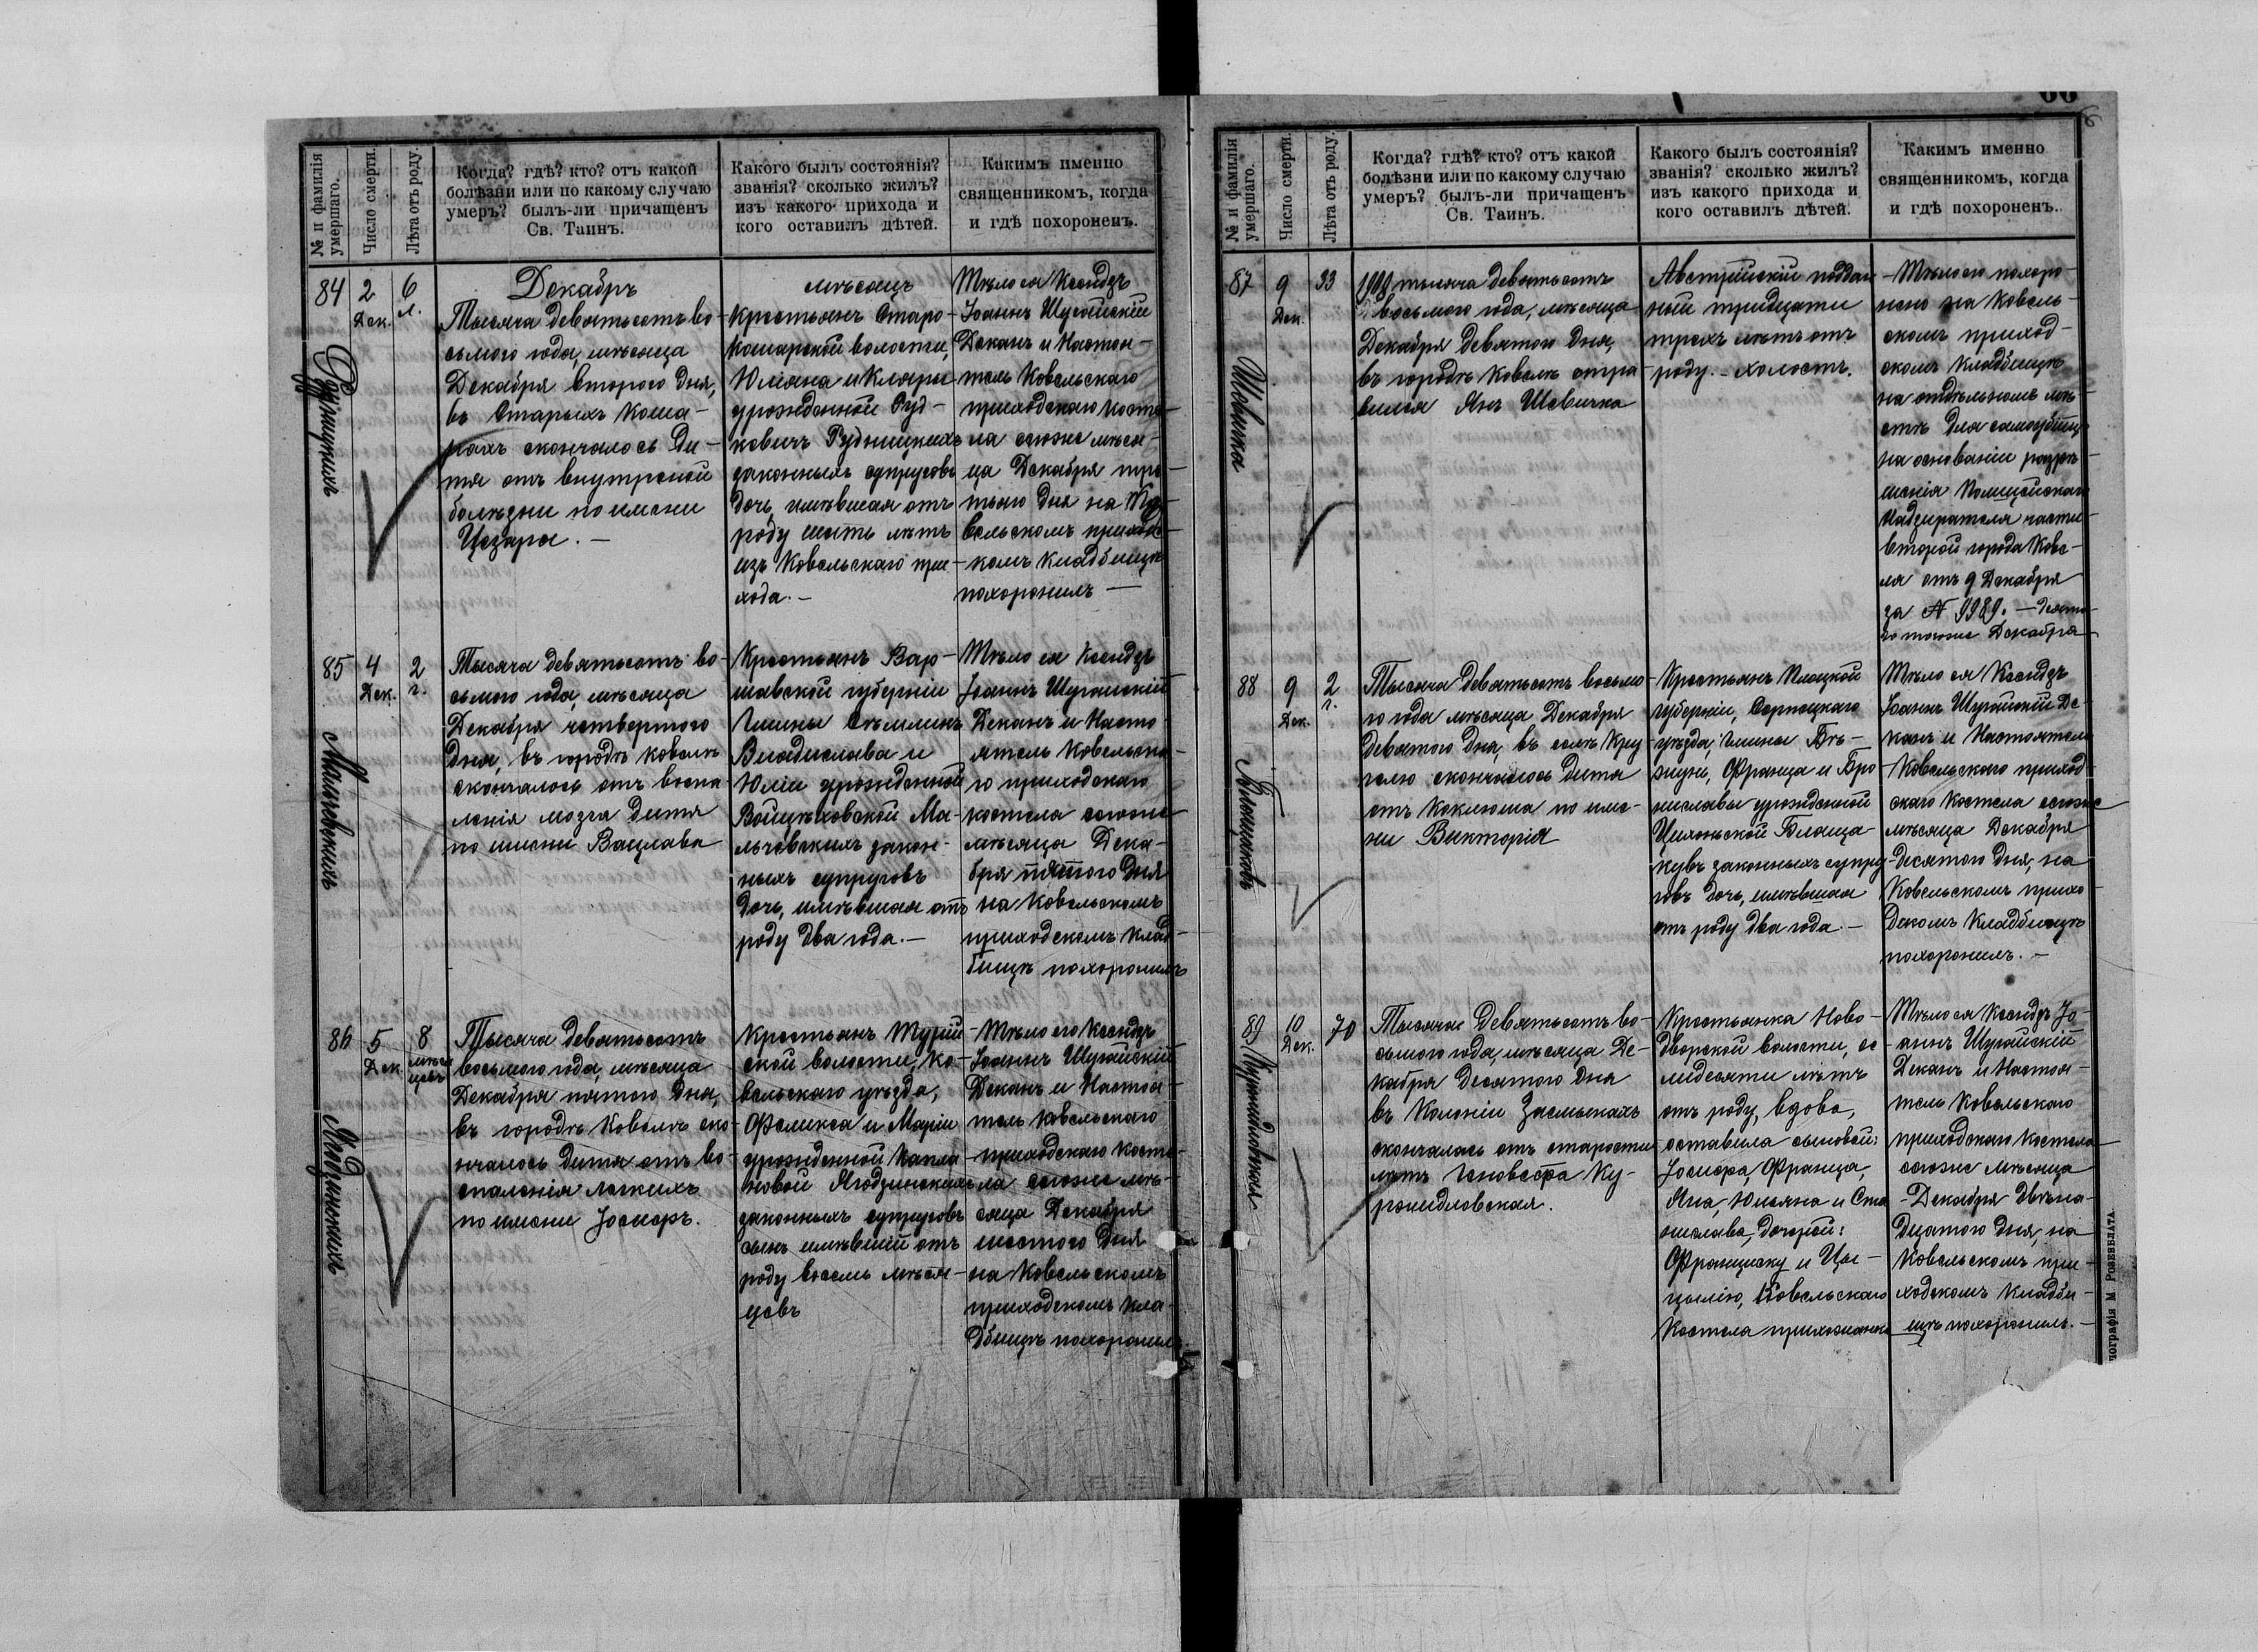 № и фамилія умершаго.
Число смерти.
Лѣта отъ роду.
Когда? гдѣ? кто? отъ какой
болѣзни или по какому случаю
умеръ? былъ-ли причащенъ
Св. Таинъ.
Какого былъ состоянія?
званія? сколько жилъ?
изъ какого прихода и
кого оставилъ дѣтей.
Какимъ именно
священникомъ, когда
и гдѣ похороненъ.
84
Рудницкихъ
2
Дек.
6
л.
Декабрь
Тысяча девятьсотъ во-
сьмого года, мѣсяца
Декабря второго дня,
въ Старыхъ Коша-
рахъ скончалось Ди-
тя отъ внутреной
болѣзни по имени
Цезаря. —
мѣсяцъ
Крестьянъ Старо-
Кошарской волости,
Юліяна и Кляры
урожденной Руд-
ковичъ Рудницкихъ
законныхъ супруговъ
дочь, имѣвшая отъ
роду шесть лѣтъ
изъ Ковельскаго при-
хода. —
Тѣло ея Ксендзъ
Іоаннъ Шугайскій
Деканъ и Настоя-
тель Ковельскаго
приходскаго косте-
ла сегоже мѣся-
ца Декабря тре-
тьяго дня на Ко-
вельскомъ приходс-
комъ кладбищѣ
похоронилъ —
85
Мальчевскихъ
4
Дек.
2
г.
Тысяча девятьсотъ во-
сьмого года, мѣсяца
Декабря четвертого
дня, въ городѣ Ковелѣ
скончалось отъ воспа
ленія мозга дитя
по имени Вацлава
Крестьянъ Вар-
шавской губерніи
Гмины
Владислава и
Юліи урожденной
Войцѣховской Ма-
льчевскихъ закон-
ныхъ супруговъ
дочь, имѣвшая отъ
роду два года. —
Тѣло ея Ксендзъ
Іоаннъ Шугайскій
Деканъ и Насто-
ятель Ковельска-
го приходскаго
костела сегоже
мѣсяца Дека-
бря пятого дня
на Ковельскомъ
приходскомъ клад-
бищѣ похоронилъ
86
Ягодзинскихъ
5
Дек.
8
мѣся
цевъ
Тысяча девятьсотъ
восьмого года, мѣсяца
Декабря пятого дня,
въ городѣ Ковелѣ ско-
нчалось дитя отъ во-
спаленія легкихъ
по имени Іосифъ.
Крестьянъ Турій
ской волости, Ко-
вельскаго уѣзда,
Феликса и Маріи
урожденной Капла
новой Ягодзинскихъ
законныхъ супруговъ
сынъ имѣвшій отъ
роду восемь мѣся-
цевъ
Тѣло его Ксендзъ
Іоаннъ Шугайскій
Деканъ и Настоя-
тель Ковельскаго
приходскаго косте-
ла сегоже мѣ-
сяца Декабря
шестого дня
на Ковельскомъ
приходскомъ кла-
дбищѣ похоронил
№ и фамилія умершаго.
Число смерти.
Лѣта отъ роду.
Когда? гдѣ? кто? отъ какой
болѣзни или по какому случаю
умеръ? былъ-ли причащенъ
Св. Таинъ.
Какого былъ состоянія?
званія? сколько жилъ?
изъ какого прихода и
кого оставилъ дѣтей.
Какимъ именно
священникомъ, когда
и гдѣ похороненъ.
87
Шевичка
9
Дек.
33
1908 тысяча девятьсотъ
восьмого года, мѣсяца
Декабря девятого дня,
въ городѣ Ковелѣ отра
вился Янъ Шевичка
Австрійскій поддан
ный тридцати
трехъ лѣтъ отъ
роду. — холостъ.
Тѣло его похоро-
нено на Ковель-
скомъ приход-
скомъ кладбищѣ
на отдѣльномъ мѣ-
стѣ для самоубійцъ
на основаніи разрѣ-
шенія Полицейскаго
Надзирателя части
второй города Кове-
ля отъ 9 Декабря
за № 9989. — десята-
го тогоже Декабря
88
9
Дек.
2
г.
Тысяча девятьсотъ восьмо
го года мѣсяца Декабря
девятого дня, въ селѣ Кру
гелю скончалось дитя
отъ коклюша по име-
ни Викторія
Крестьянъ Плоцкой
губерніи, Серпецкаго
уѣзда, гмины Бѣ-
жунь, Франца и Бро
ниславы урожденной
законныхъ супру
говъ дочь, имѣвшая
отъ роду два года. —
Тѣло ея Ксендзъ
Іоаннъ Шугайскій Де-
канъ и Настоятель
Ковельскаго приход
скаго костела сегоже
мѣсяца Декабря
десятого дня, на
Ковельскомъ прихо-
дскомъ кладбищѣ
похоронилъ. —
89
10
Дек.
70
Тысяча девятьсотъ во-
сьмого года, мѣсяца Де-
кабря десятого дня
въ Колоніи Засмыкахъ
скончалась отъ старости
лѣтъ Геновефа Ку-
Крестьянка Ново-
дворской волости, се-
мидесяти лѣтъ
отъ роду, вдова,
оставила сыновей:
Іосифа, Франца,
Яна, Юльяна и Ста
нислава, дочерей:
Францишку и Це-
цылію, Ковельскаго
Костела прихожанка
Тѣло ея Ксендзъ Іо-
аннъ Шугайскій
Деканъ и Настоя-
тель Ковельскаго
приходскаго костела
сегоже мѣсяца
Декабря двѣна-
дцатого дня, на
Ковельскомъ при-
ходскомъ кладби-
щѣ похоронилъ. —
пографія М. Розенблата.